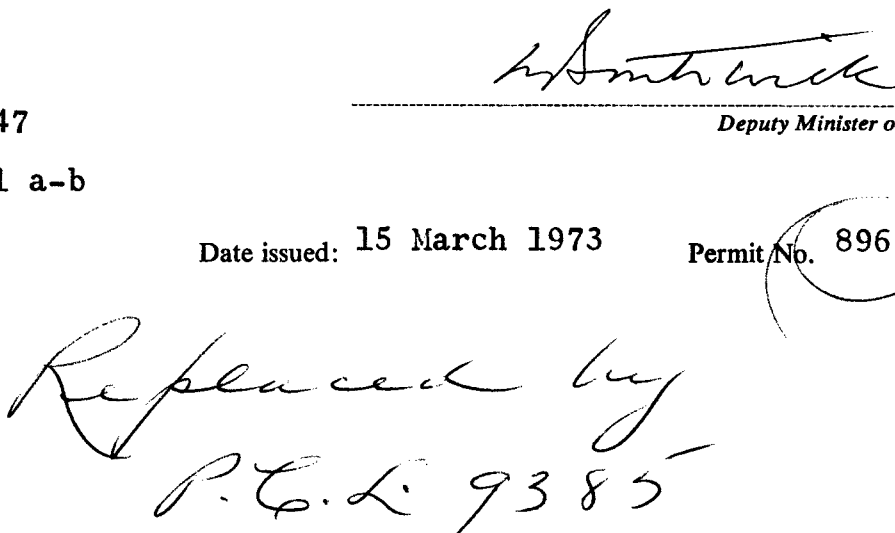 47
Deputy Minister o
1 a-b
Date issued: 15 March 1973 Permit No. 896
Replaced by
P.C.L. 9385